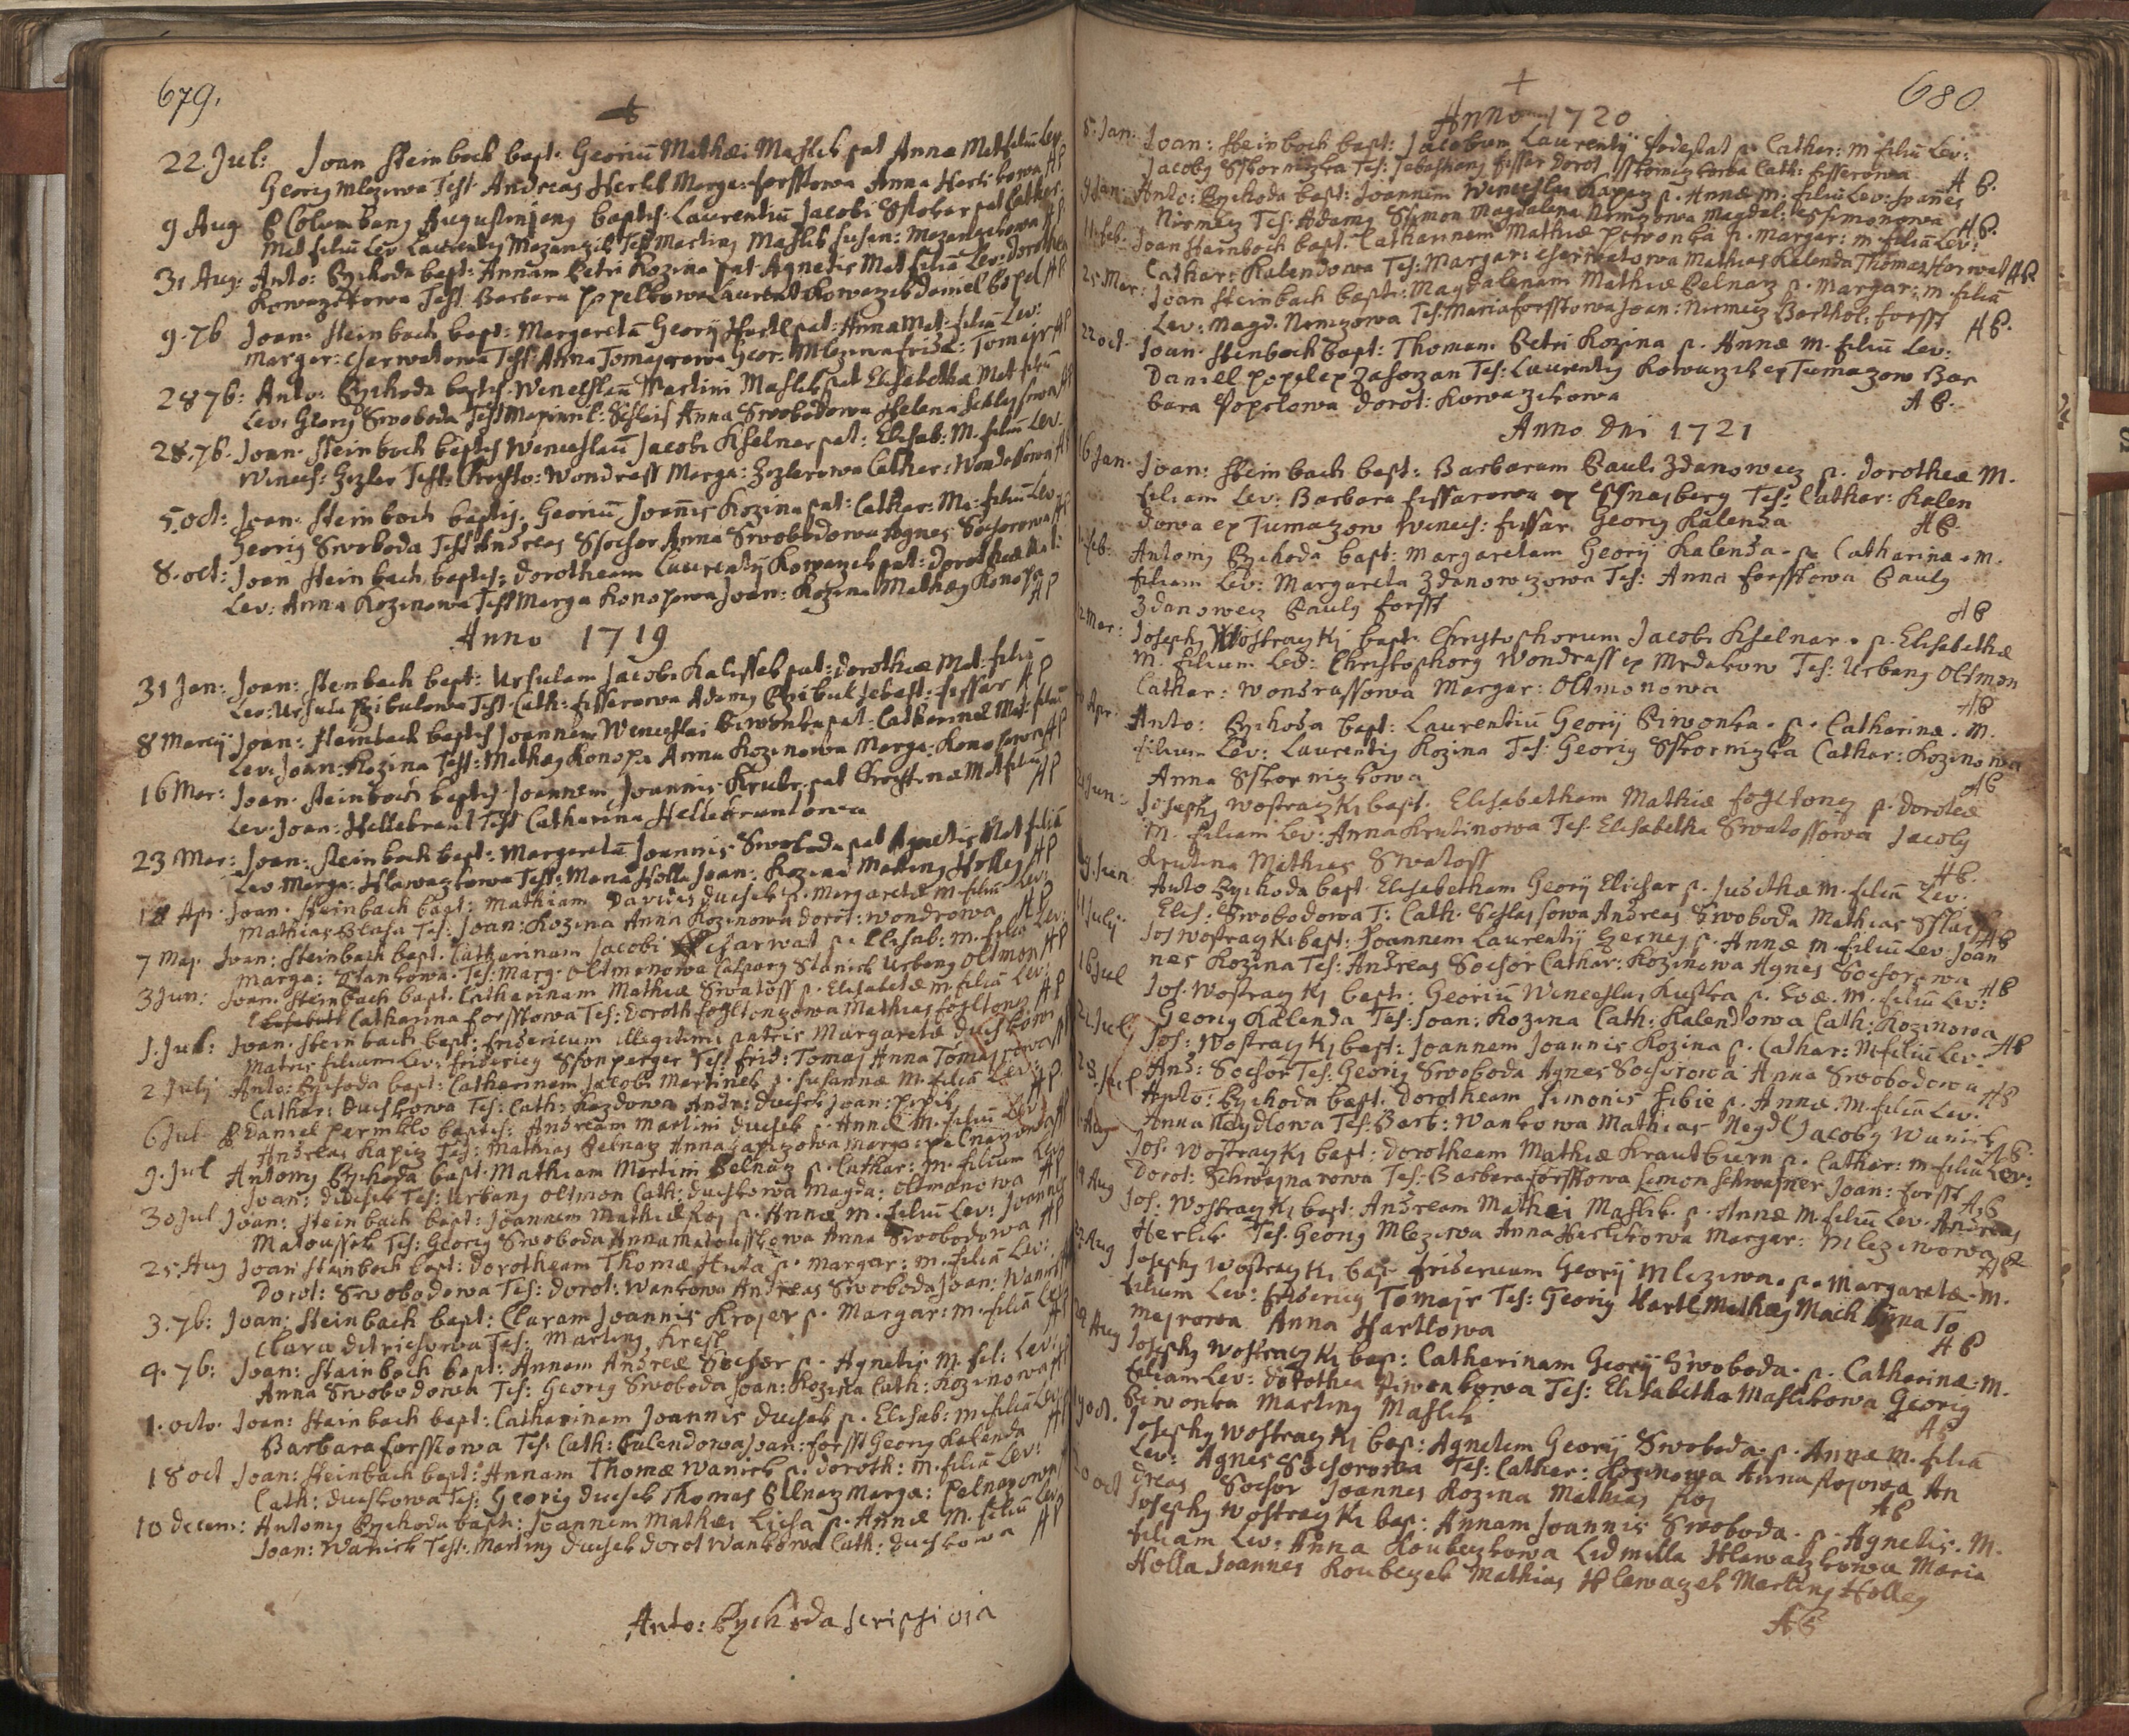 679.
22 Jul: Joan Steinboch bapt: Georiu Mathæi Maslik pat Annæ Mat filiu Lev
Georig Mlezewa Test Andreas Herlik Marga: forsstowa Anna Herlikowa AB
9 Aug P Columbang Augustinjeng baptis: Laurentiu Jacobi Sstokar pat Cathar:
Mat filiu Lev Laurentig Mezanzik Test Marting Maslik Susan: Mezanzikowa AB
31 Aug: Anto: Bychoda bapt: Annam Petri Kozina pat Agnetis Mat filia Lev: Dorothea
Kowarzikowa Test Barbara Popelkowa Laurent Kowarzik Daniel Popel AB
9. 7b Joan: Steinboch bapt: Margareta Georij Hartl pat: Anna Mat: filia Lev:
Margar: Charwatowa Test: Anna Tomayrowa Geor: Mlezewa frid: Tomajr AB
28 7b: Anto: Bychoda baptis: Wenceslau Martini Maslik pat Elisabetha Mat filiu
Lev: Georg Swoboda Test Maximil: Schleis Anna Swobodowa Helena Schleissowa AB
28. 7b. Joan: Steinboch baptis Wenceslau Jacobi Kselnar pat: Elisab: M. filiu Lev.
Wences: Zozler Test: Christo: Wondrass Marga: Zozlerowa Cathar: Wondrassowa AB
5. oct: Joan: Steinboch baptis: Georiu Joanis Kozina pat: Cathar: Ma: filiu Lev
Georig Swoboda Test Andreas Ssochor Anna Swobodowa Agnes Sochorowa AB
8. oct: Joan Steinbach baptis: Dorotheam Laurentij Kowarzik pat: Dorotheæ Mat:
Lev: Anna Kozinowa Test Marga Konopowa Joan: Kozina Mathæg Konopa
AB
Anno 1719
31 Jan: Joan: Steinbach bapt: Ursulam Jacobi Kalissek pat: Dorotheæ Mat: filia
Lev: Ursula Pribulowa Test. Cath: fisserowa Adamg Pribul Sebast: fissar AB
8 Marcij Joan: Steinbach baptis Joannem Wenceslai Piwonka pat: Catharinæ Mat: filiu
Lev: Joan: Kozina Test: Mathæg Konopa Anna Kozinowa Marga: Konopowa AB
16 Mar: Joan: Steinbach baptis Joannem Joannis Krutz pat Christinæ Mat filiu
Lev: Joan: Hellebrant Test Catharina Hellebrantowa AB
23 Mar: Joan: Steinboch bapt: Margareta Joannis Swoboda pat Agnetis Mat filia
Lev Marga: Hlawazkowa Test: Maria Holla Joan: Kozina Marting Holleg AB
18 Apr: Joan: Steinbach bapt: Mathiam Davidis Duchek p. Margaretæ M filiu Lev:
Mathias Blaha Tes: Joan: Kozina Anna Kozinowa Dorot: Wondrowa AB
7 Maj. Joan: Steinbach bapt. Catharinam Jacobi Charwat p. Elisab: M. filia Lev:
Marga: Stankowa. Tes: Marg. Oltmonowa Caspary Stanick Urbang Oltmon AB
3 Jun: Joan: Steinbach bapt. Catharinam Mathiæ Swatoss p. Elisabetæ M filia Lev:
Catharina Forsstowa Tes: Doroth fogltonzowa Mathias fogltonz AB
1. Jul: Joan: Steinbach bapt: fridericum illegitimi patris Margareta Duchkowa
Matris filium Lev: fridericg Ssonperger Test frid: Tomaj Anna Tomajrowa AB
2 Julij Anto: Bychoda bapt: Catharinam Jacobi Martinek p. Susannæ M. filia Lev:
Cathar: Duchkowa Tes: Cath: Kozdowa Andr: Duchek Joan: AB
6 Jul P Daniel Permklo baptis: Andream Martini Duchek p. Annæ M. filiu Lev
Andreas Kapiz Tes: Mathias Pelnarz Anna Kapizowa Marga: Pelnarzowa AB
9. Jul Antong Bychoda bapt: Mathiam Martini Pelnarz p. Cathar: M. filium Lev
Joan: Duchek Tes: Urbang Oltmon Cath: Duchkowa Magda: Oltmonowa AB
30 Jul Joan: Steinbach bapt: Joannem Mathiæ Roj p. Annæ M. filiu Lev: Joannes
Matoussek Tes: Georig Swoboda Anna Matousskowa Anna Swobodowa AB
25. Aug Joan Stainboch bapt: Dorotheam Thomæ Huta p. Margar: M. filia Lev:
Dorot: Swobodowa Tes: Dorot: Wankowa Andreas Swoboda Joan: Wanick AB
3. 7b: Joan: Steinbach bapt: Claram Joannis Krojer p. Margar: M. filia Lev
Clara Ditrichowa Tes: Marting Kresl AB
4. 7b: Joan: Stainboch bapt: Annam Andreæ Sochor p. Agnetis M. fil: Lev:
Anna Swobodowa Tes: Georig Swoboda Joan: Kozina Cath: Kozinowa AB
1. octo. Joan: Stainbach bapt: Catharinam Joannis Duchek p. Elisab: M. filia Lev:
Barbara forsstowa Tes: Cath: Kalendowa Joan: forsst Georg Kalenda AB
18 oct Joan: Steinbach bapt: Annam Thomæ Wanick p. Doroth: M. filia Lev:
Cath: Duchkowa Tes: Georig Duchek Thomas Pelnarz Marga: Pelnarowa AB
10 Decem: Antong Bychoda bapt: Joannem Mathei Licha p. Annæ M. filiu Lev
Joan: Wanick Test. Marting Duchek Dorot Wankowa Cath: Duchkowa AB
Anto: Bychoda scripsi
680
Anno 1720
5. Jan: Joan: Steinboch bapt: Jacobum Laurentij Podestat p. Cathar: M filiu Lev:
Jacobg Sskornizka Tes: Sebastiang fisser Dorot Sskornizkowa Cath: fisserowa AB.
9 Jan: Anto: Bychoda bapt: Joannem Wenceslai Kapez p. Annæ M. filiu Lev: Joanes
Nirmeiz Tes: Adamg Ssimon Magdalena Nirmizowa Magdal: Ssimonowa AB.
Feb: Joan Steinboch bapt. Catharinam Mathiæ Petronka p. Margar: M. filia Lev:
Cathar: Kalendowa Tes: Margar: Charwatowa Mathias Kalenda Thomas Horwat AB
25 Mar: Joan Steinbach bapt: Magdalenam Mathiæ Pelnarz p. Margar: M. filia
Lev: Magd. Nirmizowa Tes: Maria forsstowa Joan: Nirmeiz Barthol: forsst AB.
22 oct. Joan: Stenbach bapt: Thomam Petri Kozina p. Annæ M. filiu Lev:
Daniel Popel ex Zahorzan Tes: Laurentig Kowarzik ex Tumazow Bar
bara Popelowa Dorot: Kowarzikowa AB.
Anno Dni 1721
16 Jan. Joan: Steinbach bapt: Barbaram Pauli Zdanowecz p. Dorotheæ M.
filiam Lev: Barbara fissarowa ex Ssnaiberg Tes: Cathar: Kalen
dowa ex Tumazow Wences: fissar Georig Kalenda AB.
Feb: Antong Bychoda bapt: Margaretam Georij Kalenda. p. Catharinæ. M.
filiam Lev: Margareta Zdanowczowa Tes: Anna forsstowa Paulg
Zdanowecz Paulg forsst AB
Mar: Josephg Wostraczkj bapt. Christophorum Jacobi Kselnar. p. Elisabethæ
M. filium Lev: Christophorg Wondrass ex Mrdakow Tes: Urbang Oltmon
Cathar: Wondrassowa Margar: Oltmonowa AB
Apr. Anto: Bychoda bapt: Laurentiu Georij Piwonka. p. Catharinæ. M.
filium Lev: Laurentig Kozina Tes: Georig Sskornizka Cathar: Kozinowa
Anna Sskornizkowa AB
Jun: Josephg Wostraczkj bapt. Elisabetham Mathiæ foglton p. Doroteæ
M. filiam Lev: Anna Krutinowa Tes. Elisabetha Swatossowa Jacobg
Krutina Mathias Swatoss AB.
9. Jun Anto Bychoda bapt. Elisabetham Georij Elichar p. Judithæ M. filia Lev.
Elis: Swobodowa T: Cath. Schlaissowa Andreas Swoboda Mathias Sslais AB
Julij Jos Wostraczkj bapt: Joannem Laurentij Czerneg p. Annæ M. filiu Lev Joan
nes Kozina Tes: Andreas Sochor Cathar: Kozinowa Agnes Sochorowa AB
16 Jul Jos. Wostraczkj bapt: Georiu Wenceslai Kustka p. Evæ. M. filiu Lev:
Georig Kalenda Tes: Joan: Kozina Cath: Kalendowa Cath: Kozinowa AB
Julij Jos: Wostraczkj bapt: Joannem Joannis Kozina p. Cathar: M filiu Lev
And: Sochor Tes: Georig Swoboda Agnes Sochorowa Anna Swobodowa AB
Jul Anto: Bychoda bapt. Dorotheam Simonis Fibic p. Annæ. M. filia Lev:
Anna Naydlowa Tes: Barb: Wankowa Mathias Neydl Jacobg Wanick AB.
Aug Jos. Wostraczkj bapt: Dorotheam Mathiæ Krautburn p. Cathar: M filia Lev:
Dorot: Schwajnarowa Tes: Barbara forsstowa Simon Schwajner Joan: forsst AB
19 Aug Jos: Wostraczkj bapt: Andream Mathæi Maslik p. Annæ M. filiu Lev. Andreas
Herlik Tes. Georig Mlezewa Anna Herlikowa Margar: Mlezewowa AB
Aug Josephg Wostraczkj bap. fridericum Georij Mlezewa. p. Margaretæ. M.
filium Lev: fridericg Tomajr Tes: Georig Hartl Mathæg Mach Anna To
majrowa Anna Hartlowa AB
Aug Josephg Wostraczkj bap: Catharinam Georij Swoboda. p. Catharinæ. M.
filiam Lev: Dorothea Piwonkowa Tes: Elisabetha Maslikowa Georig
Piwonka Marting Maslik AB
oct. Josephg Wostraczkj bap: Agnetem Georij Swoboda. p. Annæ M. filia
Lev: Agnes Sochorowa Tes: Cathar: Kozinowa Anna Rojowa An
dreas Sochor Joannes Kozina Mathias Roj AB
oct Josephg Wostraczkj bap: Annam Joannis Swoboda. p. Agnetis. M.
filiam Lev: Anna Koubeczkowa Lidmilla Hlawaczkowa Maria
Holla Joannes Koubeczek Mathias Hlawaczek Marting Holleg
AB